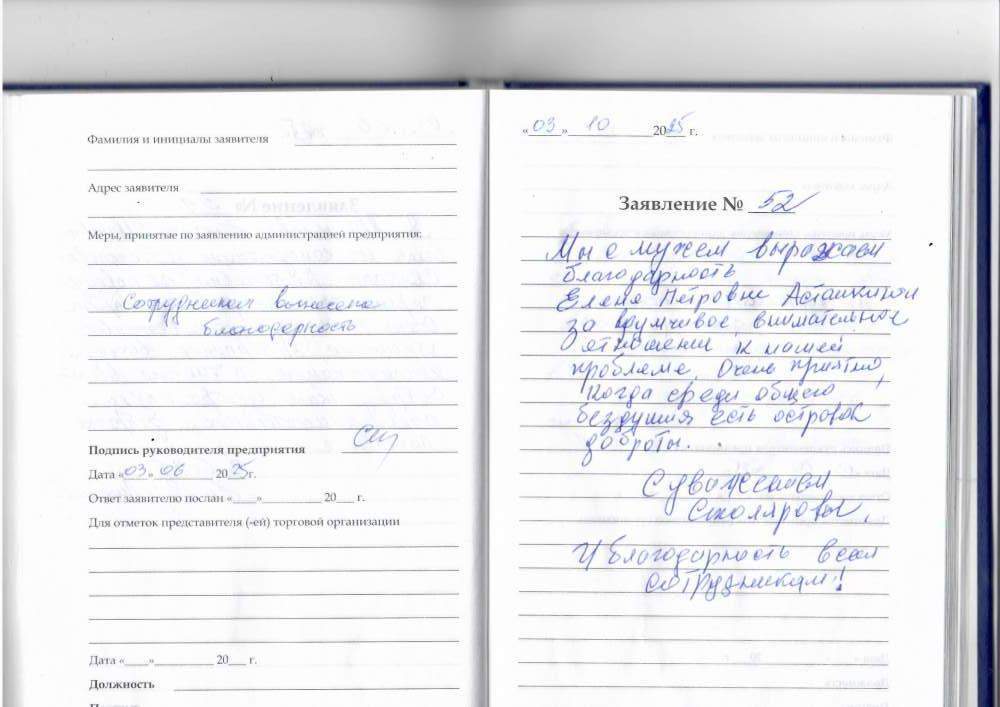 Фамилия и инициалы заявителя
Адрес заявителя
Меры, принятые по заявлению администрацией предприятия:
Сотрудникам вынесена
благодарность
Подпись руководителя предприятия
Дата «03» 06 2025г.
Ответ заявителю послан «___»__________ 20___ г.
Для отметок представителя (-ей) торговой организации
Дата «___»__________ 20___ г.
Должность
«03» 10 2025 г.
Заявление № 52
Мы с мужем выражаем
благодарность
Елене Петровне Асташкиной
за вдумчивое, внимательное
отношении к нашей
проблеме. Очень приятно,
когда среди общего
бездушия есть островок
доброты.
С уважением
Столяровы.
И благодарность всем
сотрудникам!